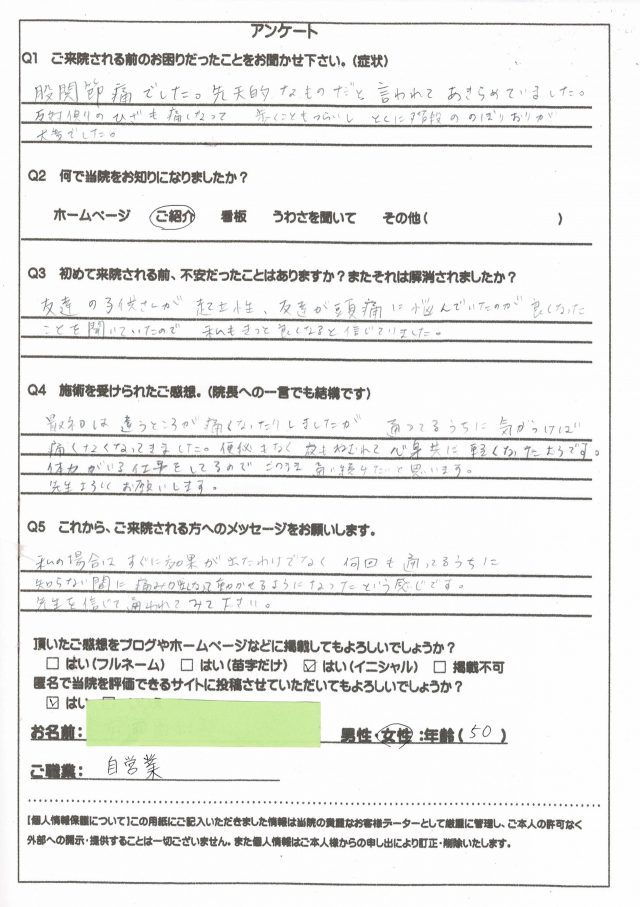 アンケート
Q1 ご来院される前のお困りだったことをお聞かせ下さい。(症状)
股関節痛でした。先天的なものだと言われてあきらめていました。
反対側のひざも痛くなって 歩くこともつらいし とくに階段ののぼりおりが
大変でした。
Q2 何で当院をお知りになりましたか?
ホームページ ご紹介 看板 うわさを聞いて その他( )
Q3 初めて来院される前、不安だったことはありますか?またそれは解消されましたか?
友達の子供さんが 起立性、友達が頭痛に悩んでいたのが 良くなった
ことを聞いていたので 私もきっと良くなると信じていました。
Q4 施術を受けられたご感想。(院長への一言でも結構です)
最初は違うところが痛くなったりしましたが 通ってるうちに 気がつけば
痛くなくなってきました。便秘もなく 夜もねむれて 心身共に 軽くなったようです。
体力がいる仕事をしてるので このまま 通い続けたいと思います。
先生よろしくお願いします。
Q5 これから、ご来院される方へのメッセージをお願いします。
私の場合は すぐに効果が出たわけでなく 何回も通ってるうちに
知らない間に 痛みが 動かせるようになったという感じです。
先生を信じて通われてみて下さい。
頂いたご感想をブログやホームページなどに掲載してもよろしいでしょうか?
□ はい(フルネーム) □ はい(苗字だけ) ☑ はい(イニシャル) □ 掲載不可
匿名で当院を評価できるサイトに投稿させていただいてもよろしいでしょうか?
☑ はい
お名前: 男性・女性:年齢(50)
ご職業: 自営業
【個人情報保護について】この用紙にご記入いただきました情報は当院の貴重なお客様データーとして厳重に管理し、ご本人の許可なく
外部への開示・提供することは一切ございません。また個人情報はご本人様からの申し出により訂正・削除いたします。